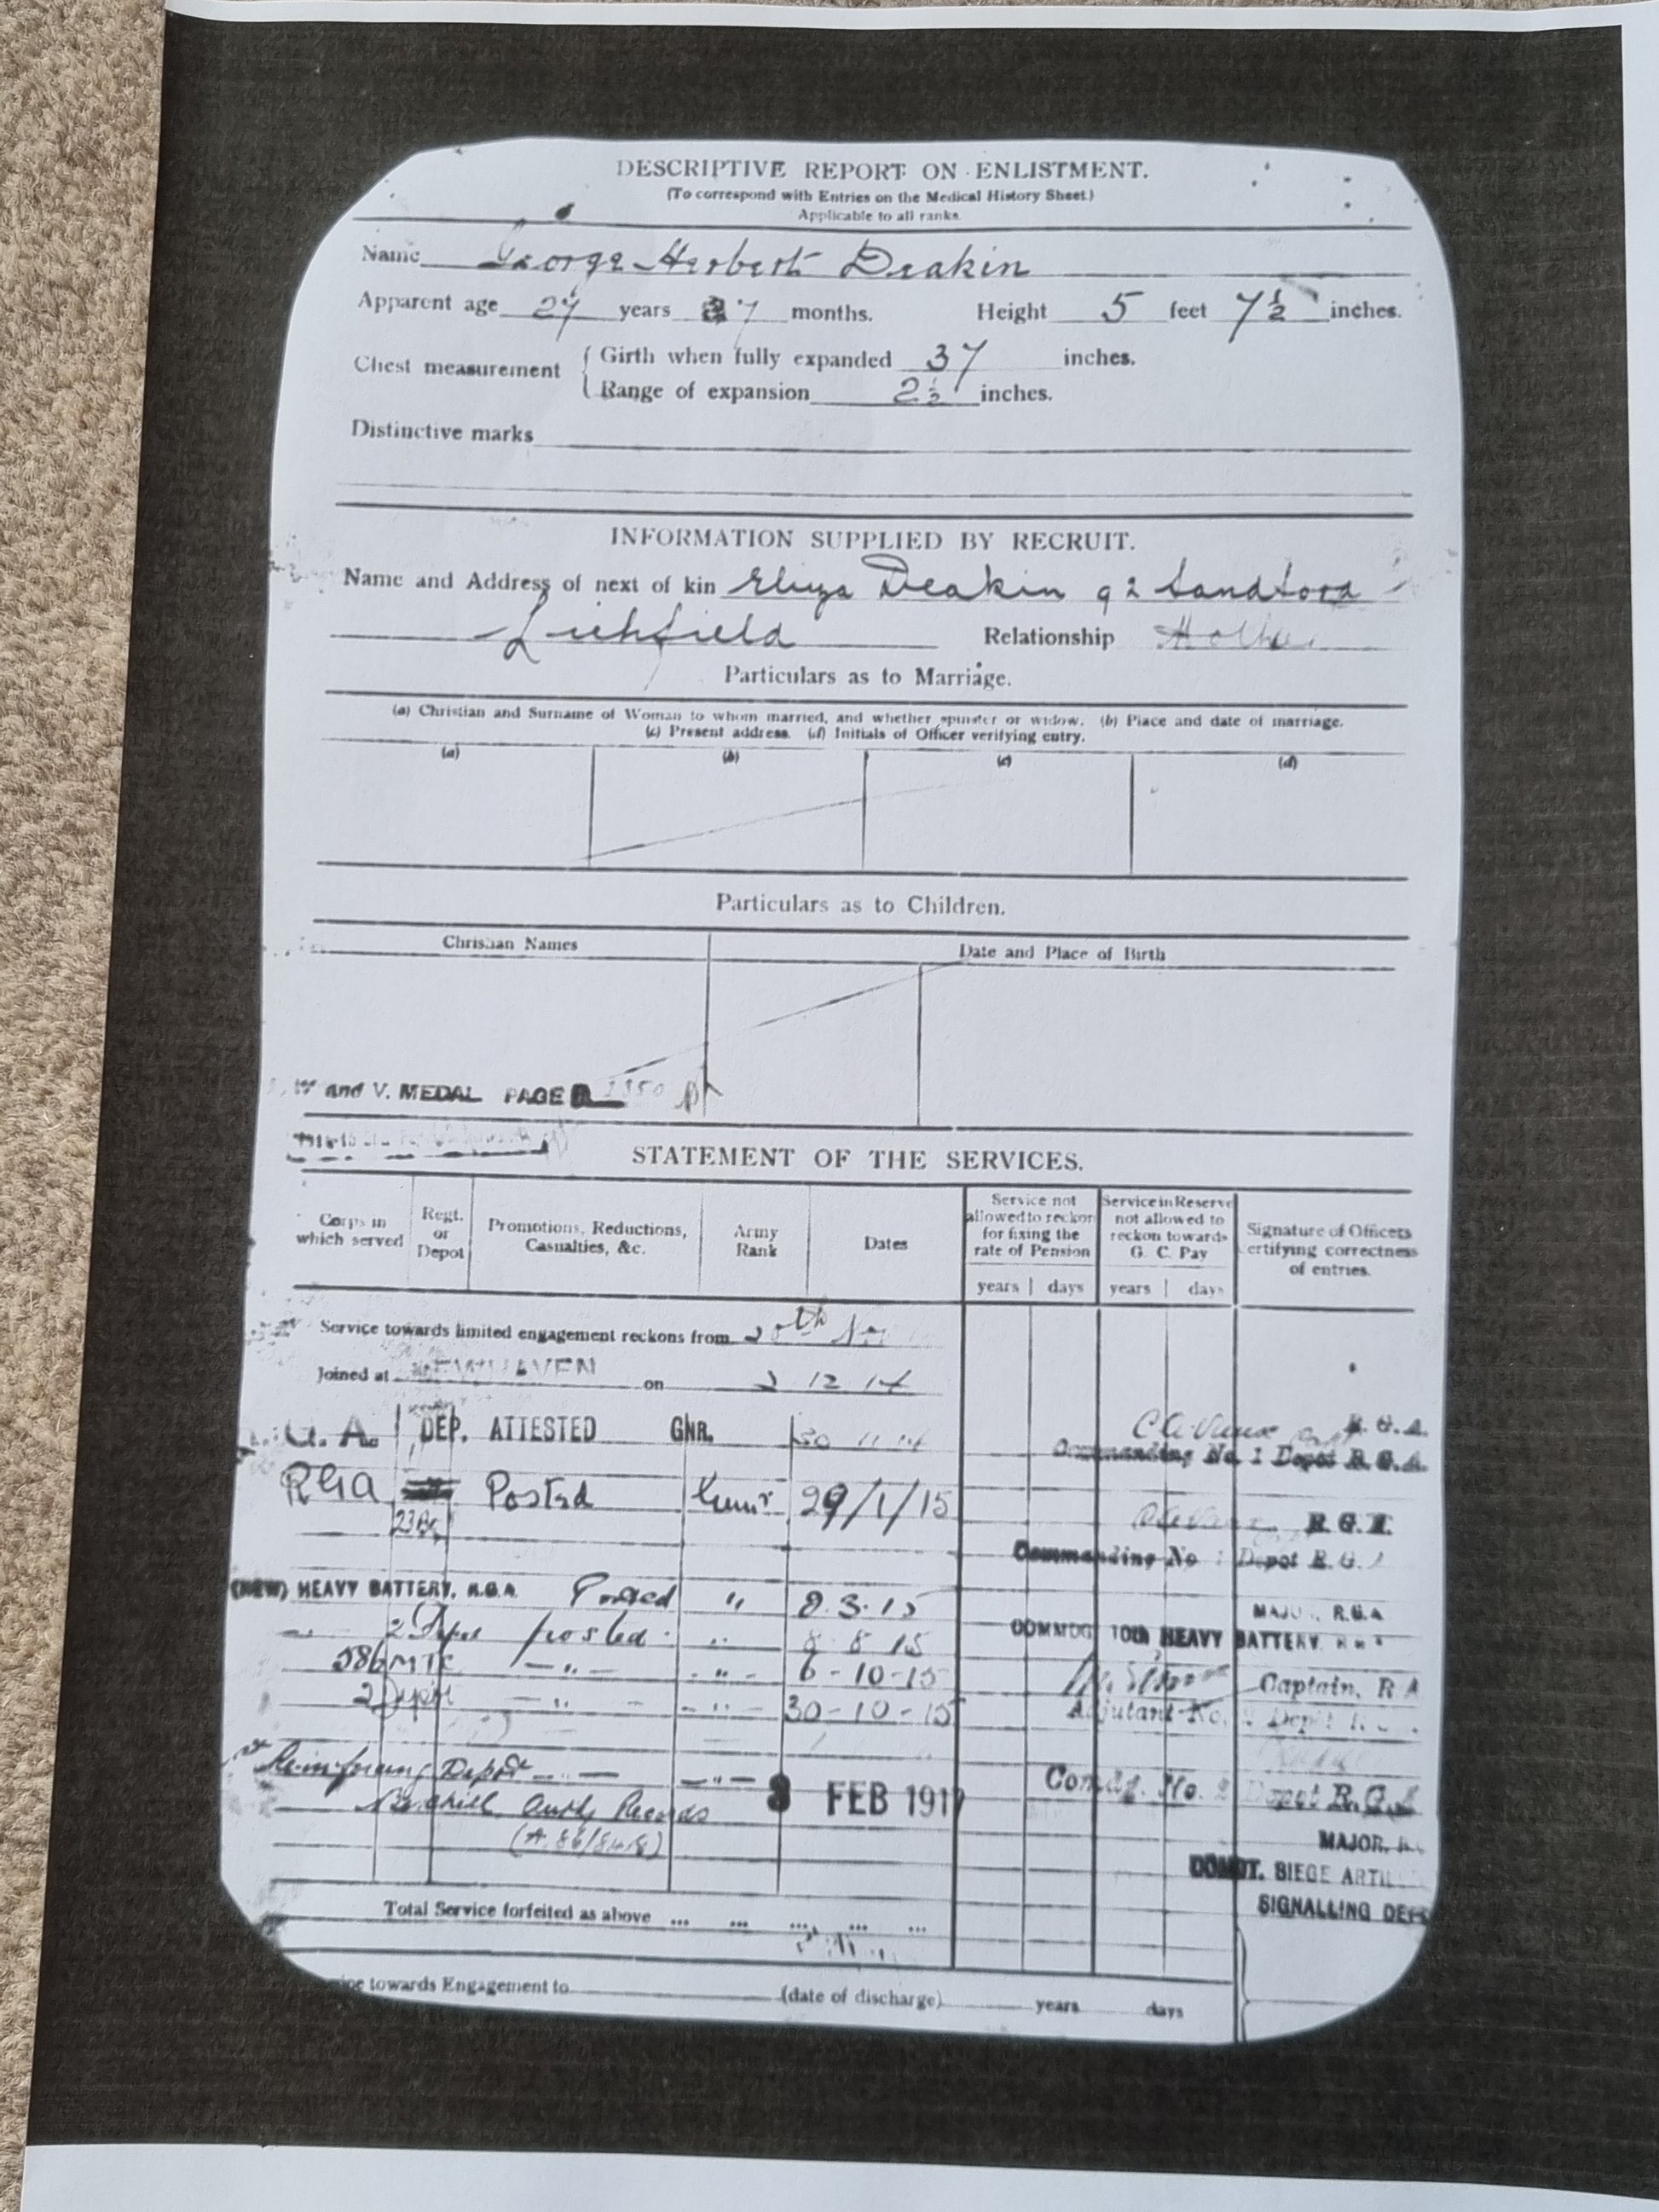 DESCRIPTIVE REPORT ON ENLISTMENT.
(To correspond with Entries on the Medical History Sheet.)
Applicable to all ranks.
Name George Herbert Deakin
Apparent age 27 years 7 months. Height 5 feet 7½ inches.
Chest measurement { Girth when fully expanded 37 inches.
Range of expansion 2½ inches.
Distinctive marks
INFORMATION SUPPLIED BY RECRUIT.
Name and Address of next of kin Eliza Deakin 92 Sandford
Lichfield Relationship Mother
Particulars as to Marriage.
(a) Christian and Surname of Woman to whom married, and whether spinster or widow. (b) Place and date of marriage.
(c) Present address. (d) Initials of Officer verifying entry.
(a) (b) (c) (d)
Particulars as to Children.
Christian Names Date and Place of Birth
W and V. MEDAL PAGE
STATEMENT OF THE SERVICES.
Corps in which served Regt. or Depot Promotions, Reductions, Casualties, &c. Army Rank Dates Service not allowed to reckon for fixing the rate of Pension Service in Reserve not allowed to reckon towards G. C. Pay Signature of Officers certifying correctness of entries.
years days years days
Service towards limited engagement reckons from 20th Nov
Joined at NEWHAVEN on 2 12 14
G. A. DEP. ATTESTED GNR. 20 11 14 R. G. A.
Commanding No. 1 Depot R. G. A.
RGA Posted Gunr 29/1/15 R. G. A.
23 By
Commanding No 1 Depot R. G. A
(NEW) HEAVY BATTERY, R.G.A. Posted " 8.3.15 MAJOR, R.G.A
2 Depot posted " 8 8 15 COMMDG 10th HEAVY BATTERY. R G A
586 MTC — " — " — 6-10-15 Captain, R A
2 Depot — " — " — 30-10-15 Adjutant No. 2 Depot
Reinforcing Depôt — " — " — 3 FEB 1917 Comdg. No. 2 Depot R.G.A
Bexhill Auth Records
MAJOR,
COMDT. SIEGE ARTIL
SIGNALLING DEP
Total Service forfeited as above ... ... ... ... ...
towards Engagement to (date of discharge) years days